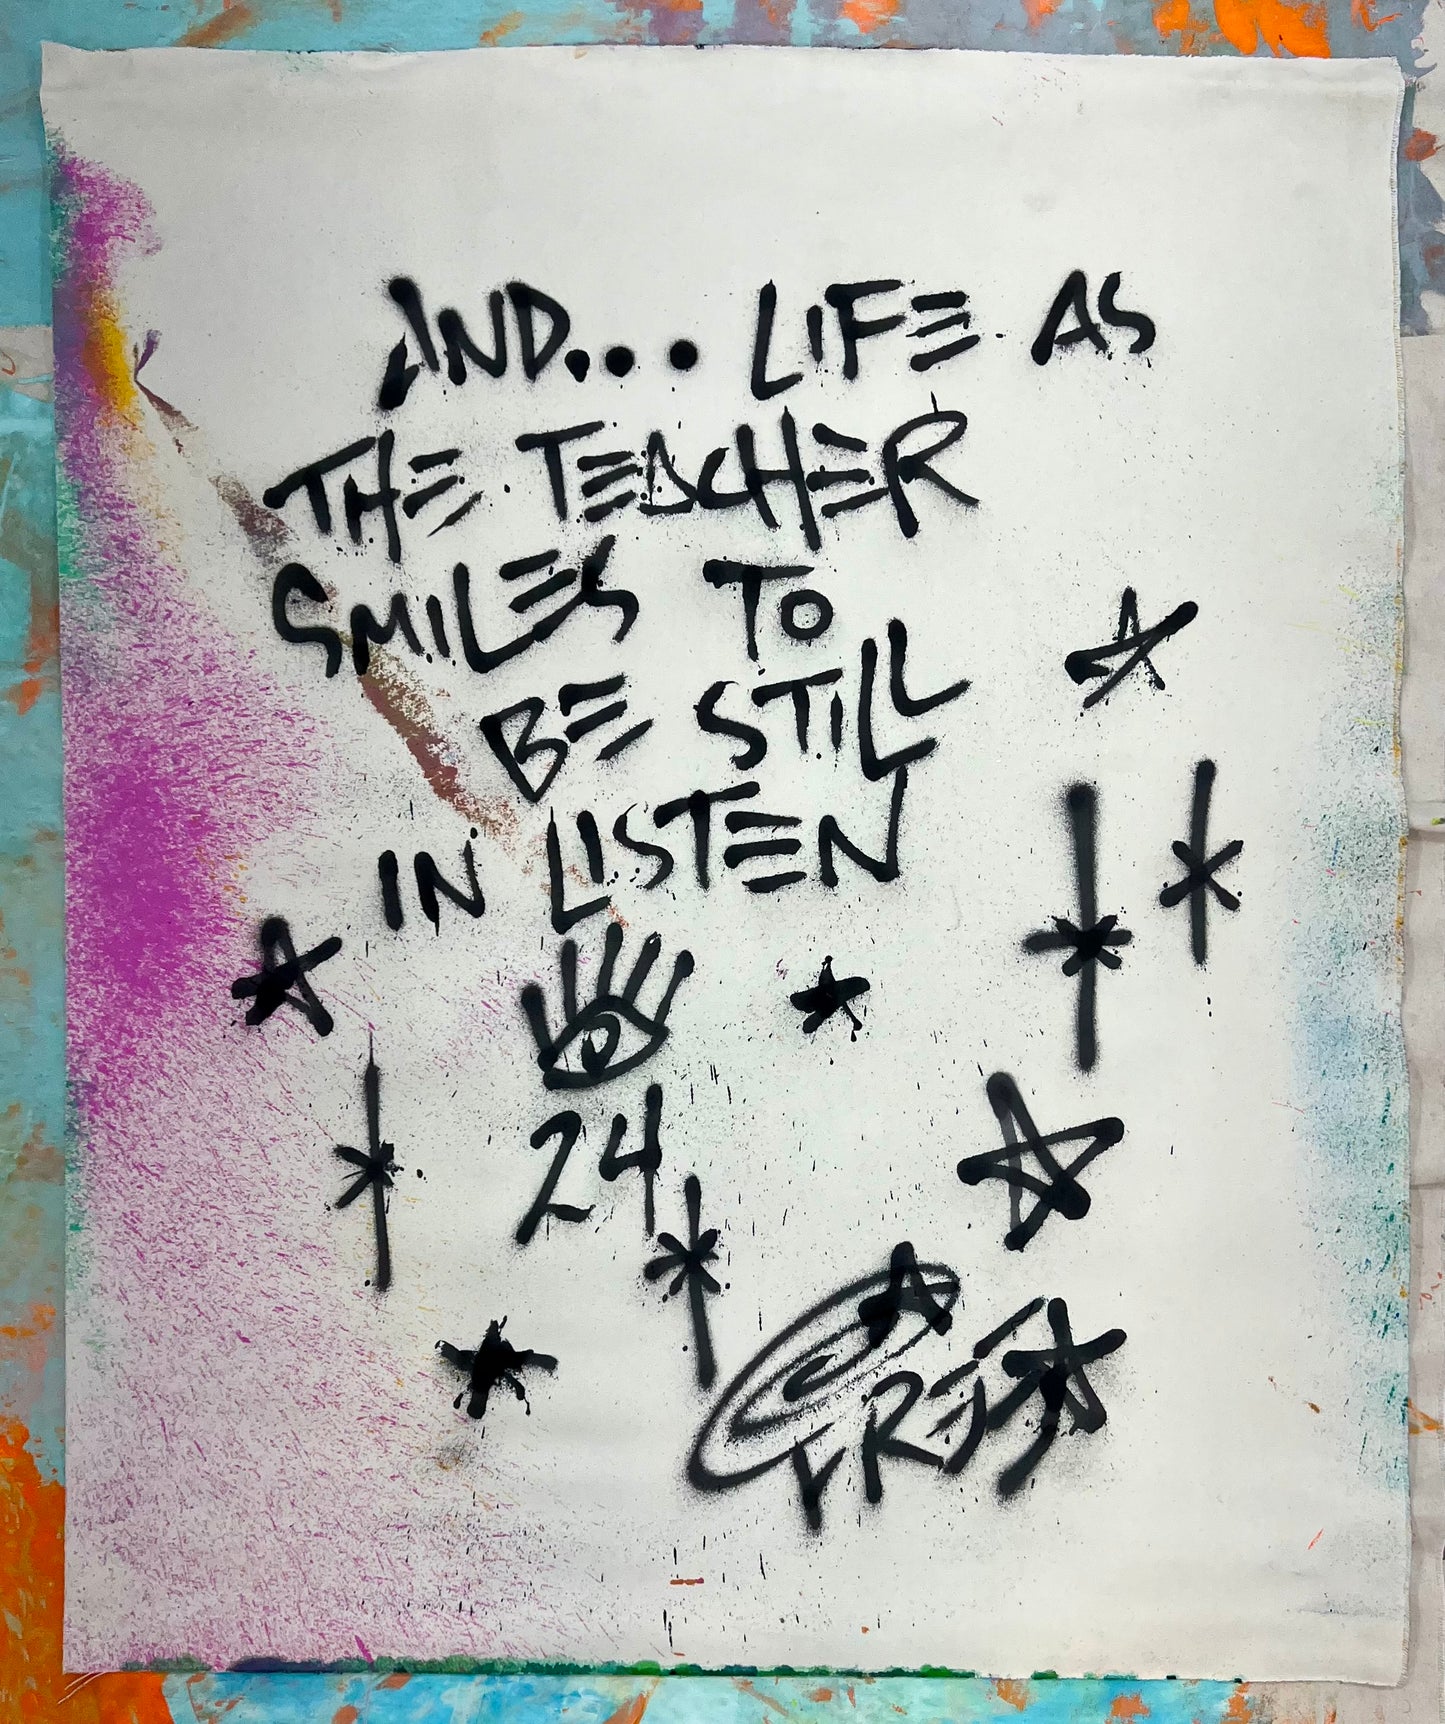 AND... LIFE AS
THE TEACHER
SMILES TO
BE STILL
IN LISTEN
24